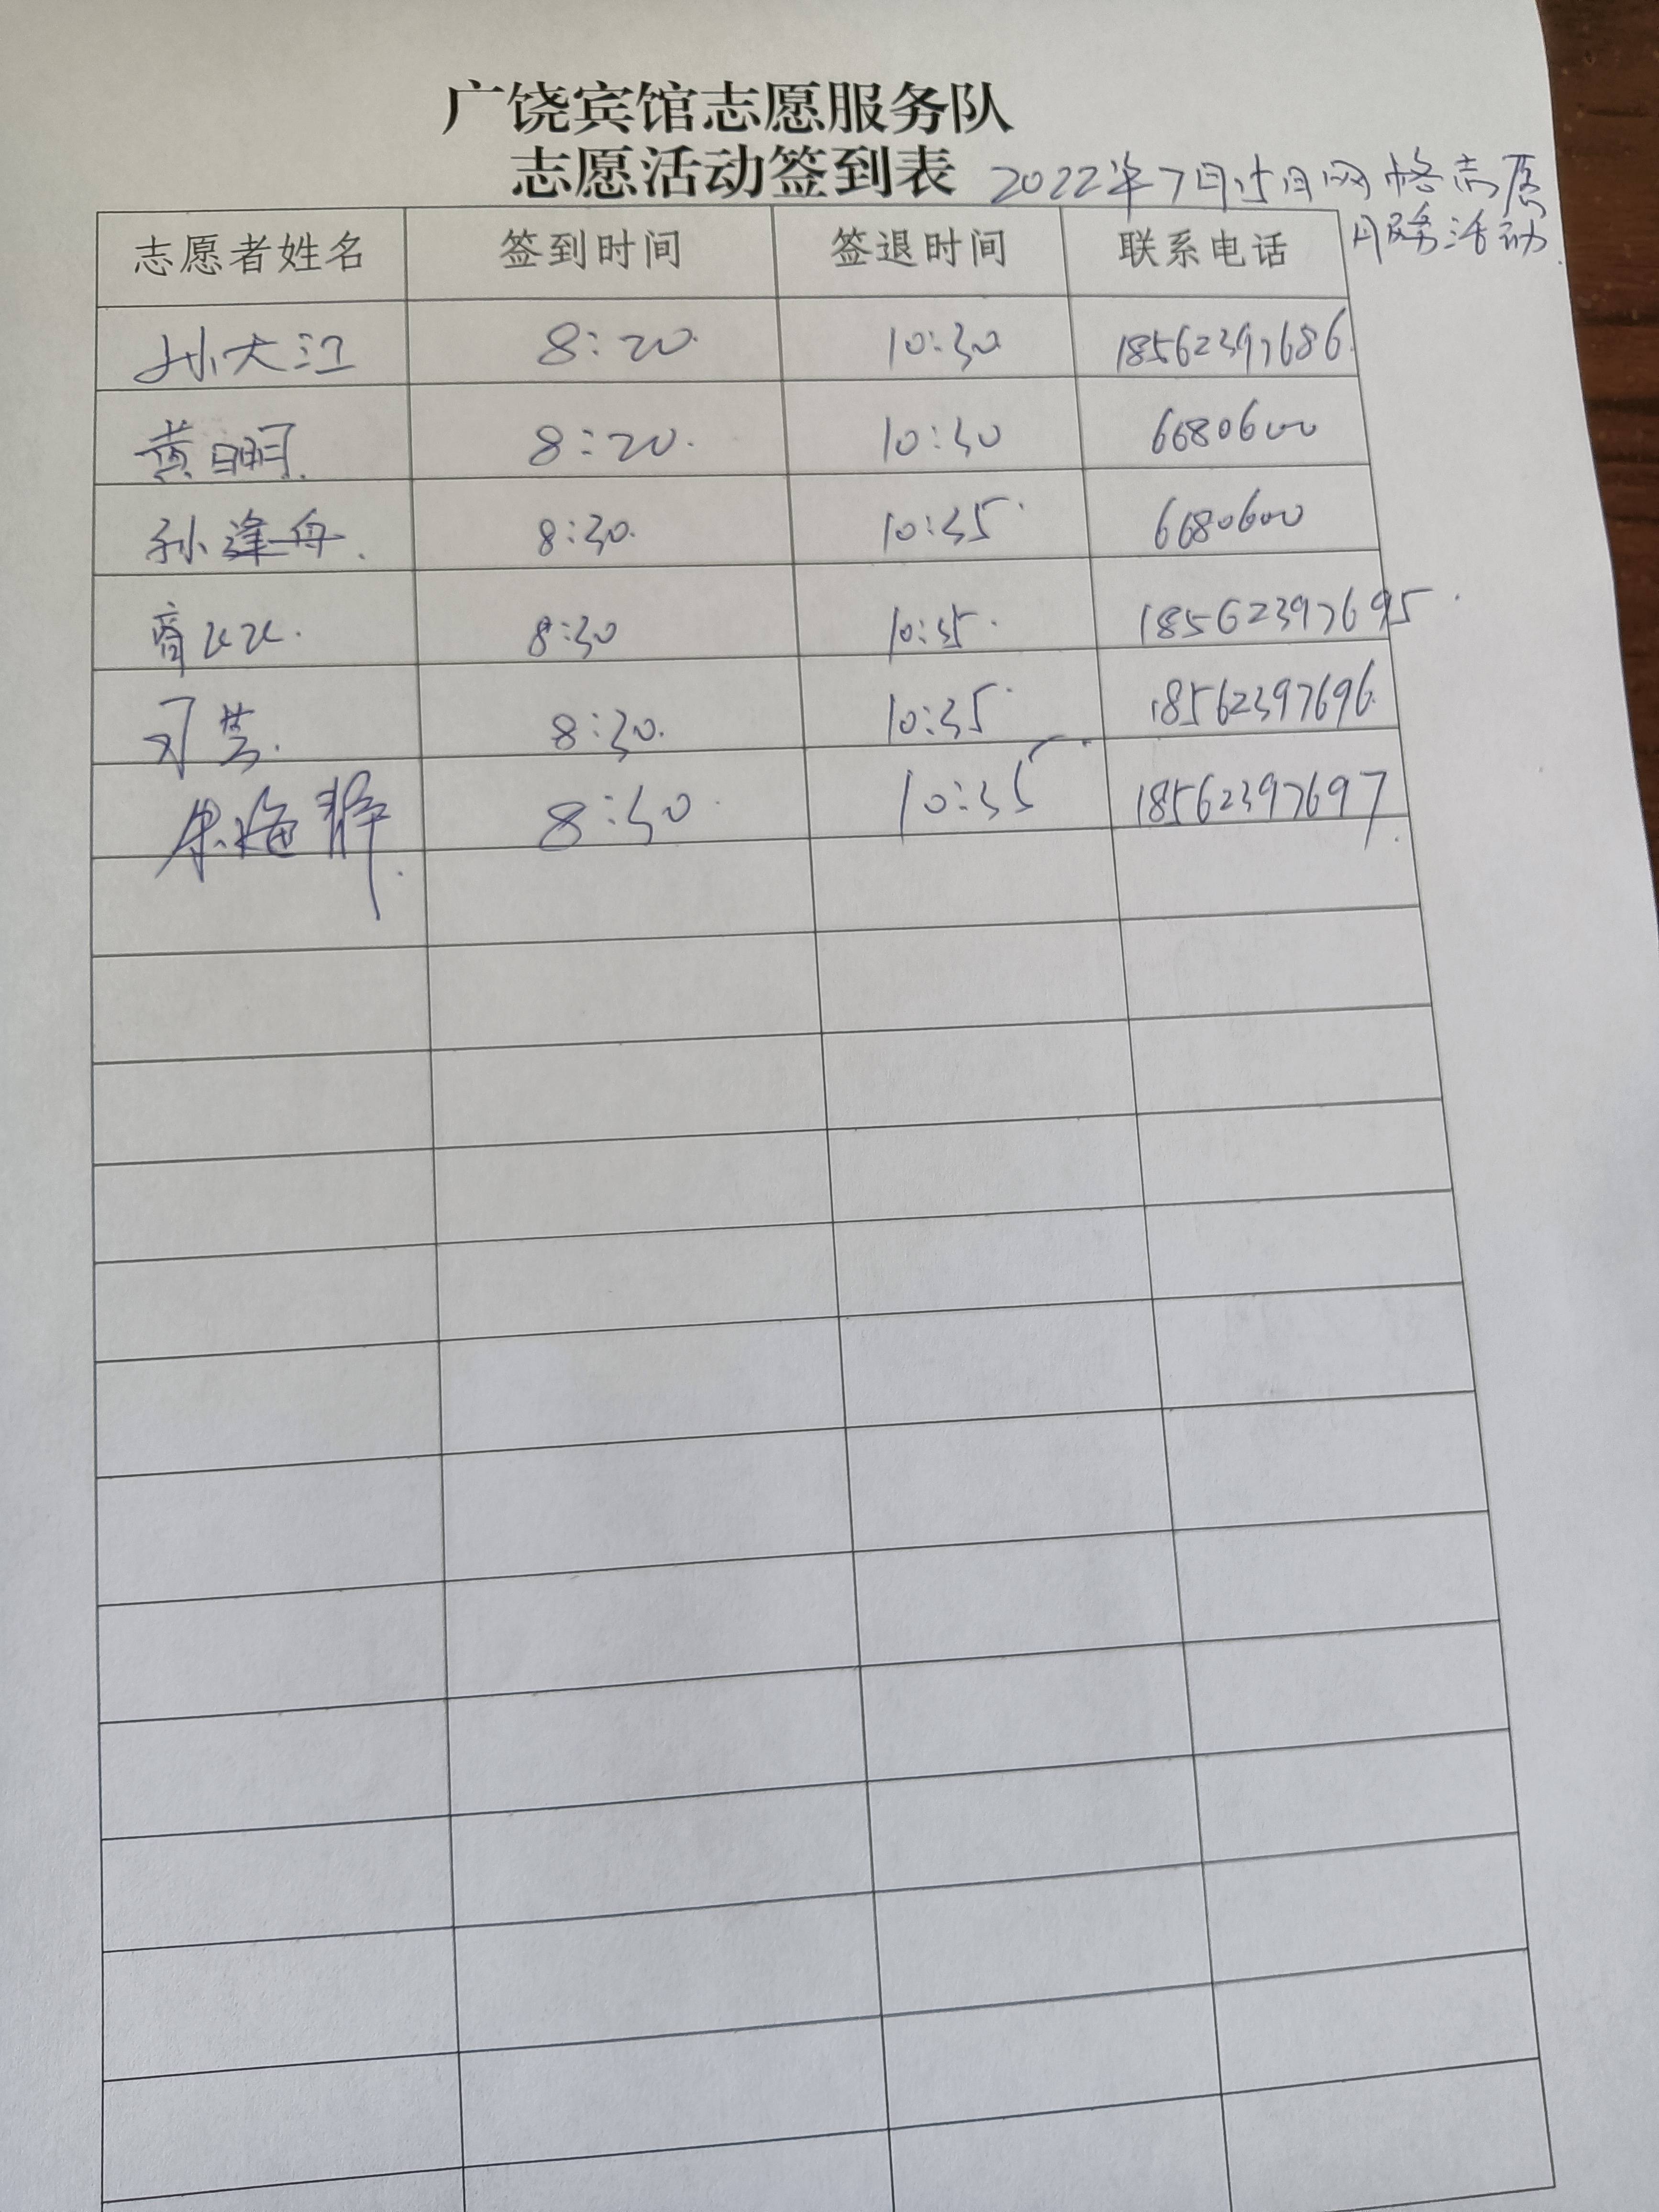 广饶宾馆志愿服务队
志愿活动签到表 2022年7月15日网格志愿
服务活动.
志愿者姓名 签到时间 签退时间 联系电话
孙大江 8:20. 10:30 18562397686.
黄明. 8:20. 10:30 6680600
孙逢舟. 8:30. 10:35. 6680600
8:30 10:35. 18562397695.
刁芸. 8:30. 10:35. 18562397696.
朱海静. 8:30. 10:35. 18562397697.